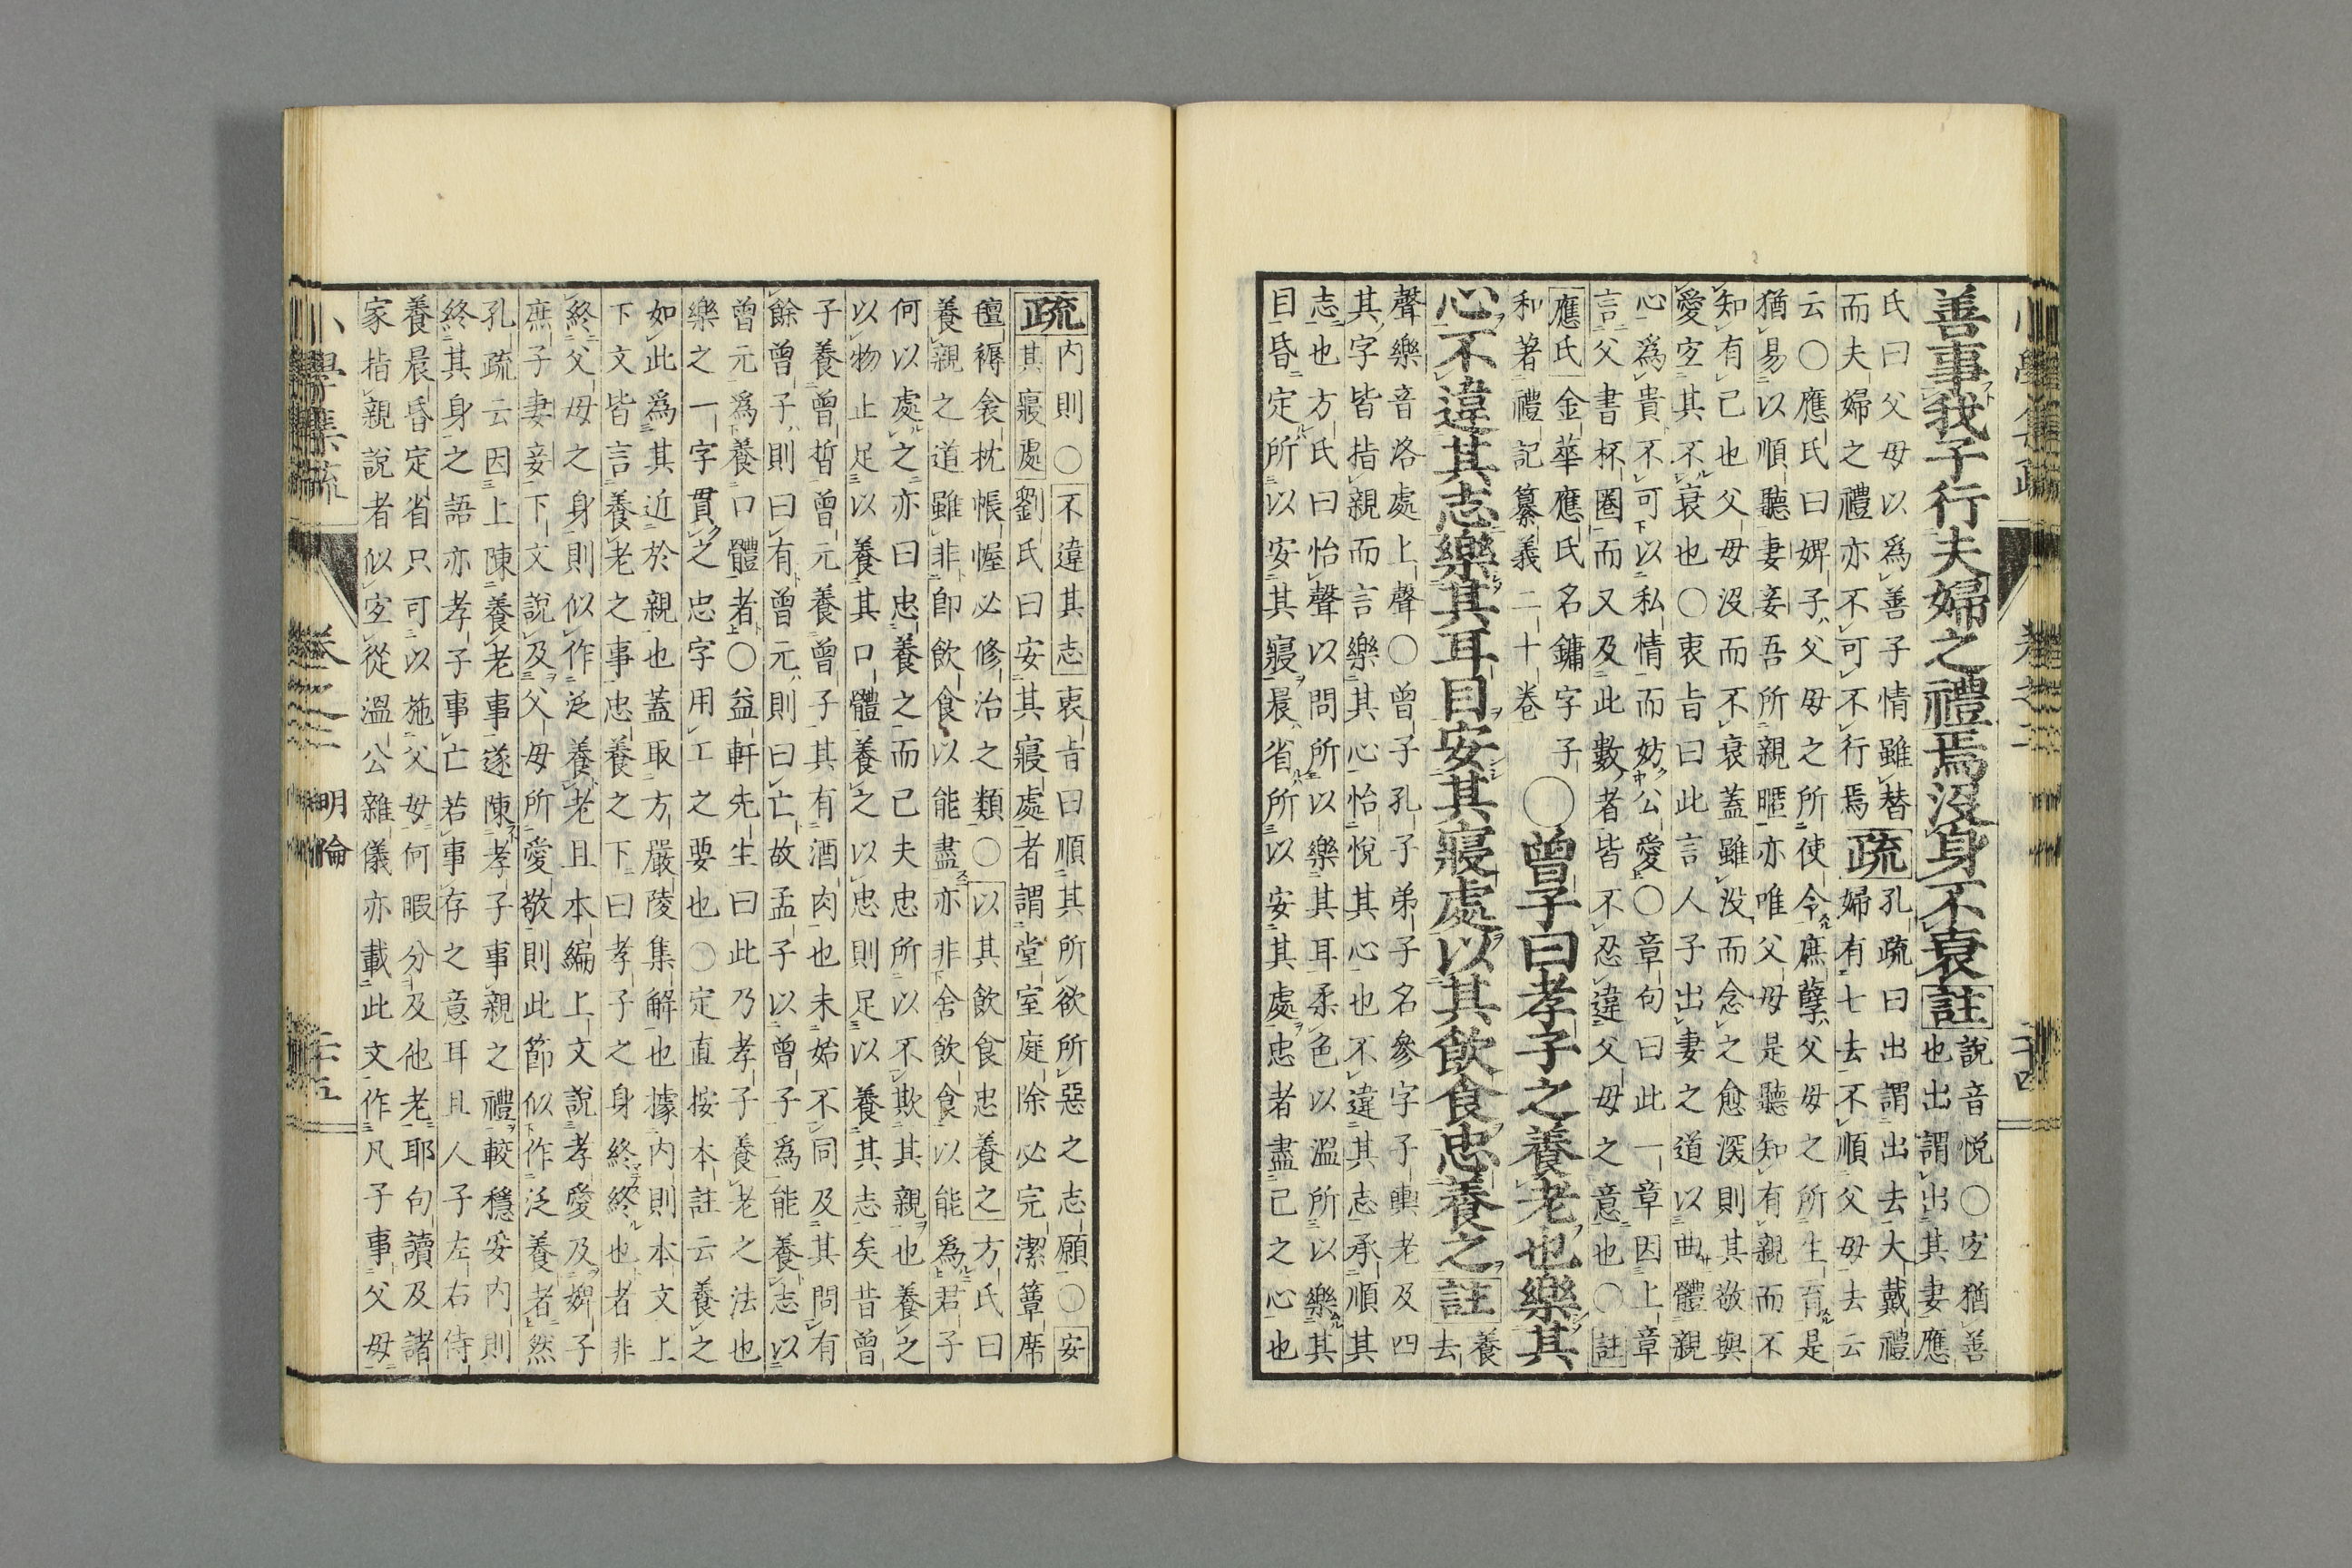 善事我子行夫婦之禮焉沒身不衰註說音悅〇宐猶善
也出謂出其妻應
氏曰父母以爲善子情雖替疏孔疏曰出謂出去大戴禮
而夫婦之禮亦不可不行焉婦有七去不順父母去云
云〇應氏曰婢子父母之所使令庶孽父母之所生育是
猶易以順聽妻妾吾所親暱亦唯父母是聽知有親而不
知有己也父母沒而不衰蓋雖沒而念之愈深則其敬與
愛宐其不衰也〇衷旨曰此言人子出妻之道以曲體親
心爲貴不可以私情而妨公愛〇章句曰此一章因上章
言父書杯圈而又及此數者皆不忍違父母之意也〇註
應氏金華應氏名鏞字子
和著禮記纂義二十卷
〇曾子曰孝子之養老也樂其
心不違其志樂其耳目安其寢處以其飲食忠養之註養
去
聲樂音洛處上聲〇曾子孔子弟子名參字子輿老及四
其字皆指親而言樂其心怡悅其心也不違其志承順其
志也方氏曰怡聲以問所以樂其耳柔色以溫所以樂其
目昏定所以安其寢晨省所以安其處忠者盡己之心也
疏內則〇不違其志衷旨曰順其所欲所惡之志願〇安
其寢處劉氏曰安其寢處者謂堂室庭除必完潔簟席
氊褥衾枕帳幄必修治之類〇以其飲食忠養之方氏曰
養親之道雖非卽飲食以能盡亦非舍飲食以能爲君子
何以處之亦曰忠養之而已夫忠所以不欺其親也養之
以物止足以養其口體養之以忠則足以養其志矣昔曾
子養曾晳曾元養曾子其有酒肉也未始不同及其問有
餘曾子則曰有曾元則曰亡故孟子以曾子爲能養志以
曾元爲養口體者〇益軒先生曰此乃孝子養老之法也
樂之一字貫之忠字用工之要也〇定直按本註云養之
如此爲其近於親也蓋取方嚴陵集解也據內則本文上
下文皆言養老之事忠養之下曰孝子之身終終也者非
終父母之身則似作泛養老且本編上文說孝愛及婢子
庶子妻妾下文說及父母所愛敬則此節似作泛養者然
孔疏云因上陳養老事遂陳孝子事親之禮較穩妥內則
終其身之語亦孝子事亡若事存之意耳且人子左右侍
養晨昏定省只可以施父母何暇分及他老耶句讀及諸
家指親說者似宐從溫公雜儀亦載此文作凡子事父母
小學集疏
卷之二
明倫
二十五